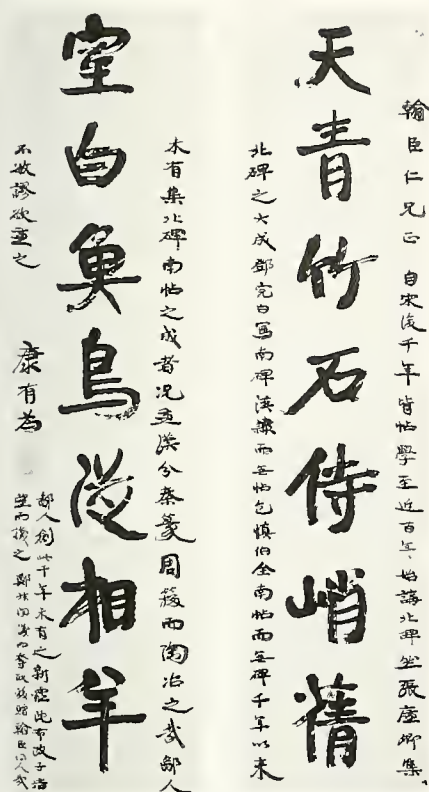 翰臣仁兄正 自宋後千年皆帖學至近百年始講北碑然張廉卿集
天青竹石侍峭蒨
北碑之大成鄧完白寫南碑漢隸而无帖包慎伯全南帖而无碑千年以來
未有集北碑南帖之成者況兼漢分秦篆周籀而陶冶之哉鄙人
室白魚鳥從相羊
不敏謬欲兼之 康有為
鄙人創此千年未有之新體沈布政子培
望而識之 鄭叔問 而奪取 翰臣